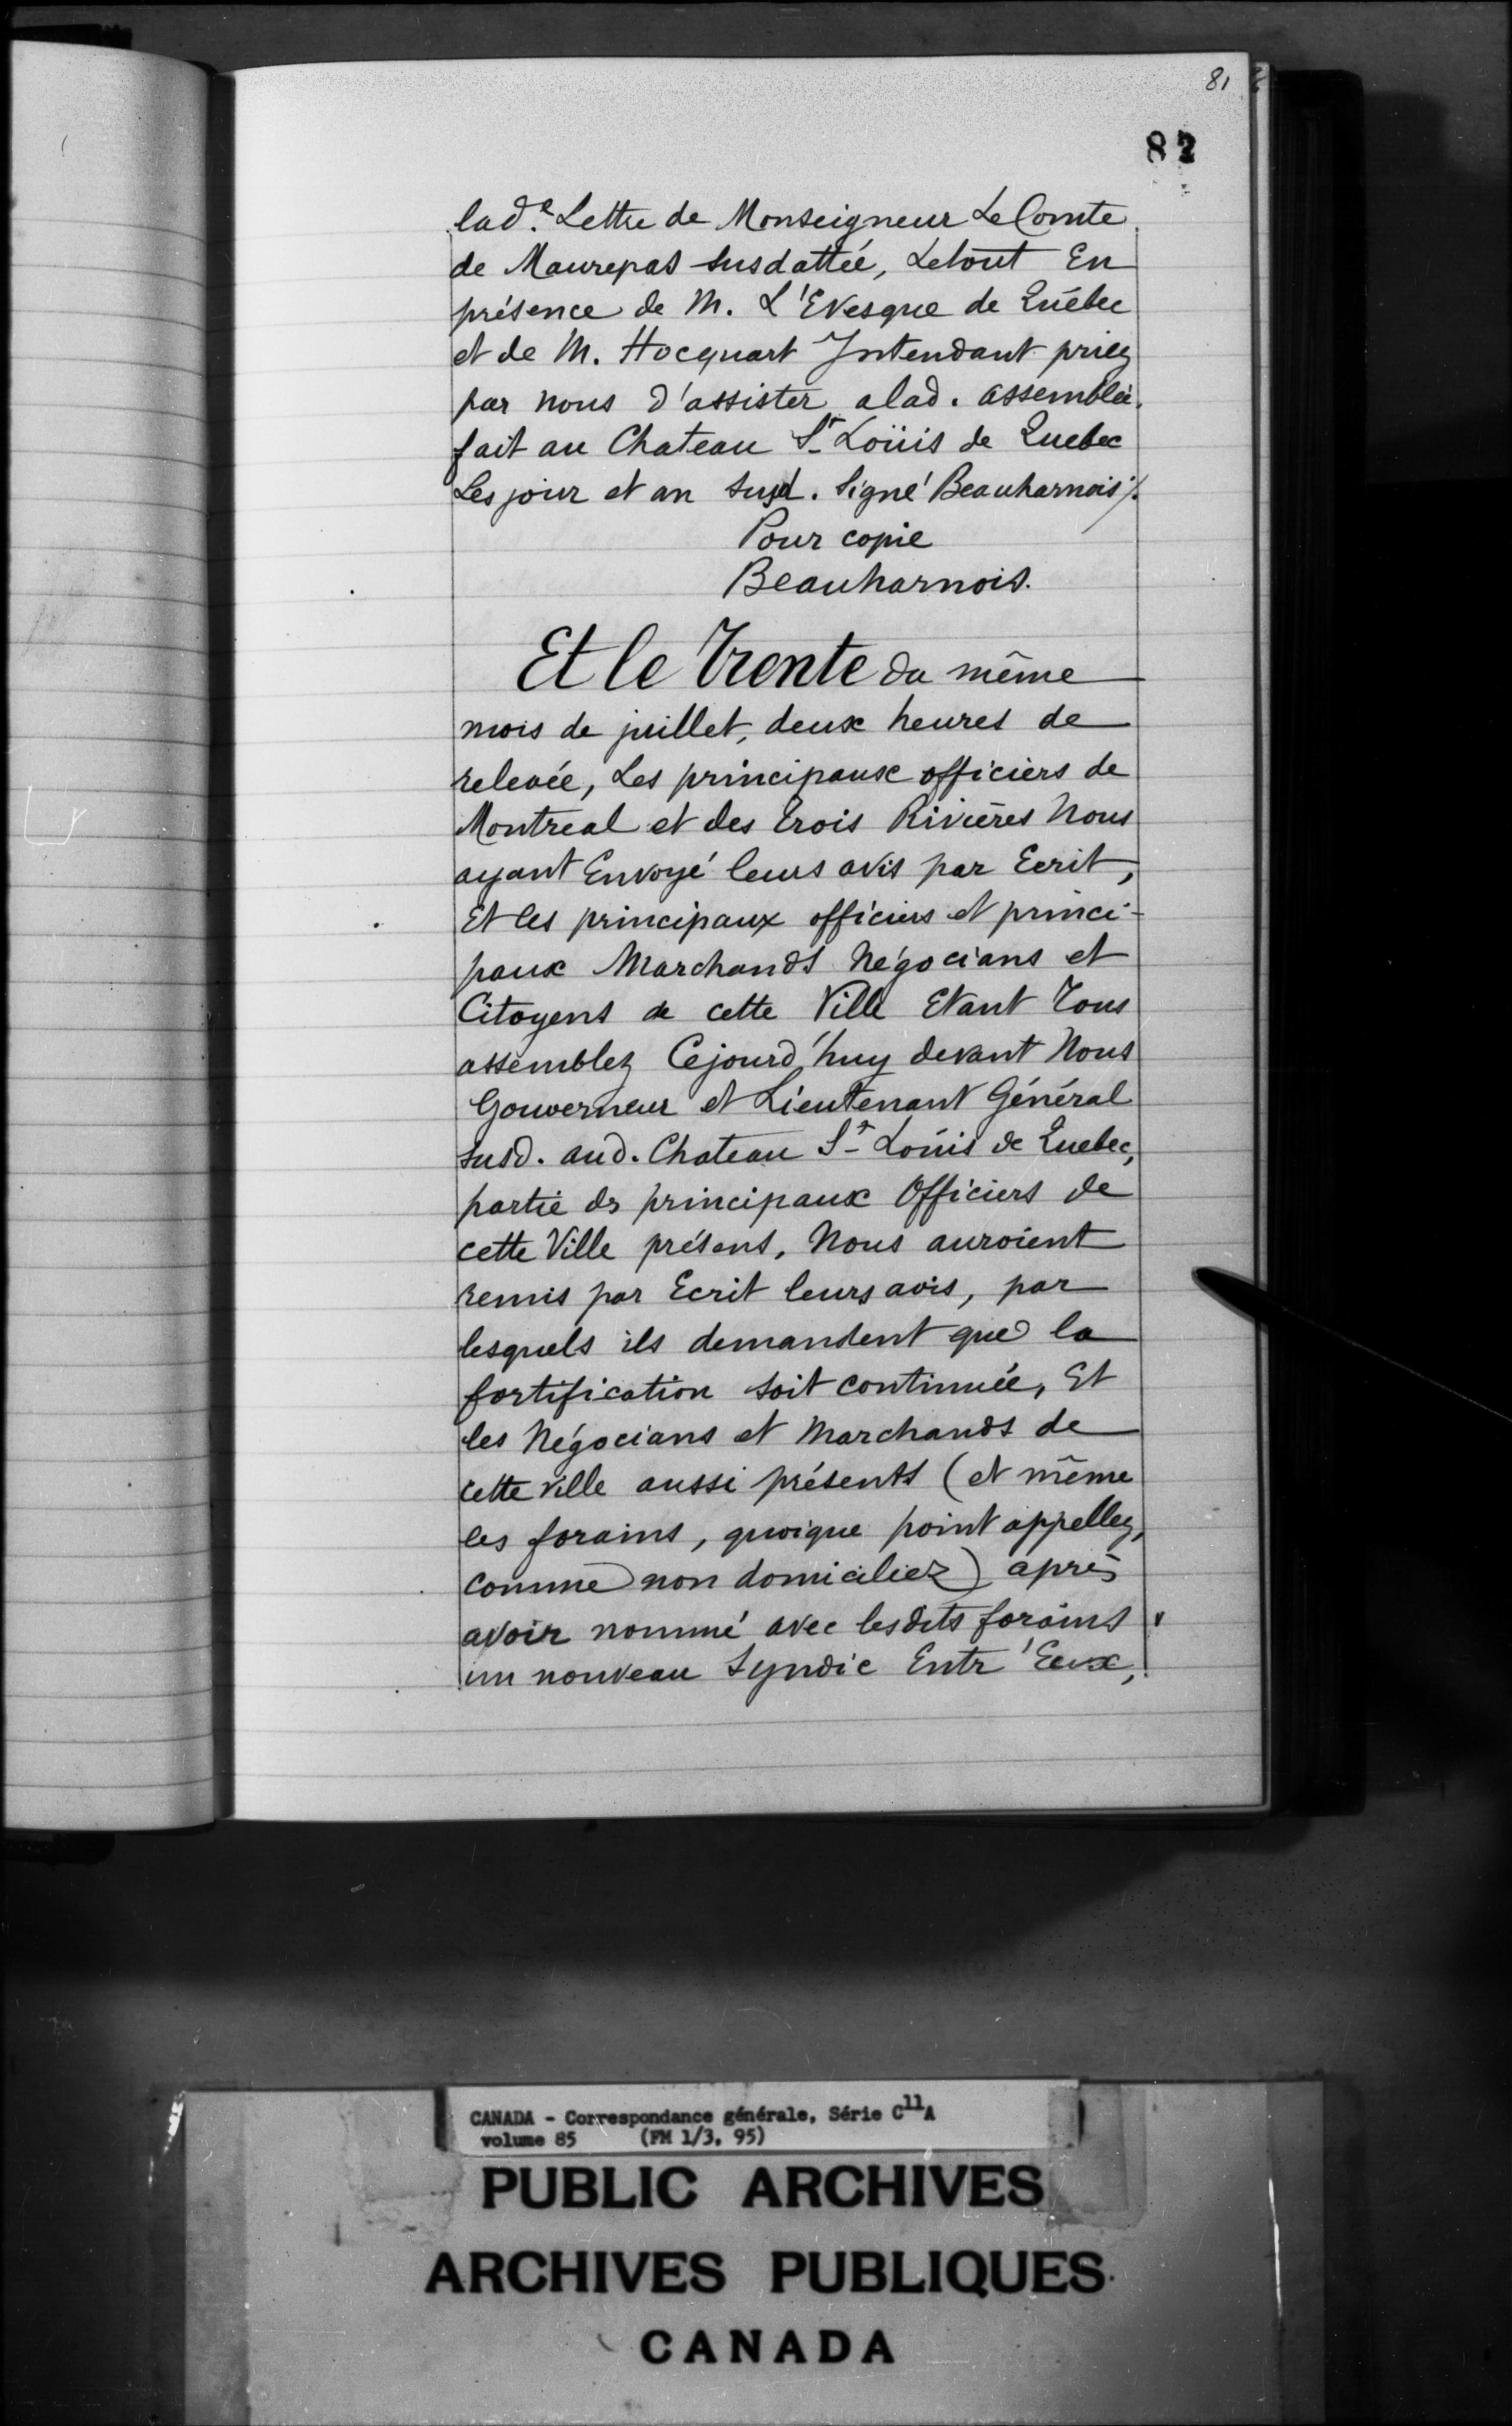 81
82
lad.e Lettre de Monseigneur Le Comte
de Maurepas susdattée, Letout En
présence de M. L'Evesque de Québec
et de M. Hocquart Intendant priez
par nous d'assister alad. assemblée.
fait au Chateau St Loüis de Quebec
Les jour et an susd. Signé Beauharnois ./.
Pour copie
Beauharnois.
Et le Trente du même
mois de juillet, deux heures de
relevée, Les principaux officiers de
Montreal et des Trois Rivières Nous
ayant Envoyé leurs avis par Ecrit,
Et les principaux officiers et princi-
paux Marchands Négocians et
Citoyens de cette Ville Etant Tous
assemblez Cejourd'huy devant Nous
Gouverneur et Lieutenant Général
susd. aud. Chateau St Loüis de Quebec,
partie ds principaux Officiers de
cette Ville présens, Nous auroient
remis par Ecrit leurs avis, par
lesquels ils demandent que la
fortification soit continuée, Et
les Négocians et Marchands de
cette ville aussi présents (et même
les forains, quoique point appellez,
comme non domiciliez) après
avoir nommé avec lesdits forains
un nouveau Syndic Entr'Eux,
CANADA - Correspondance générale, Série C11A
volume 85 (FM 1/3, 95)
PUBLIC ARCHIVES
ARCHIVES PUBLIQUES
CANADA